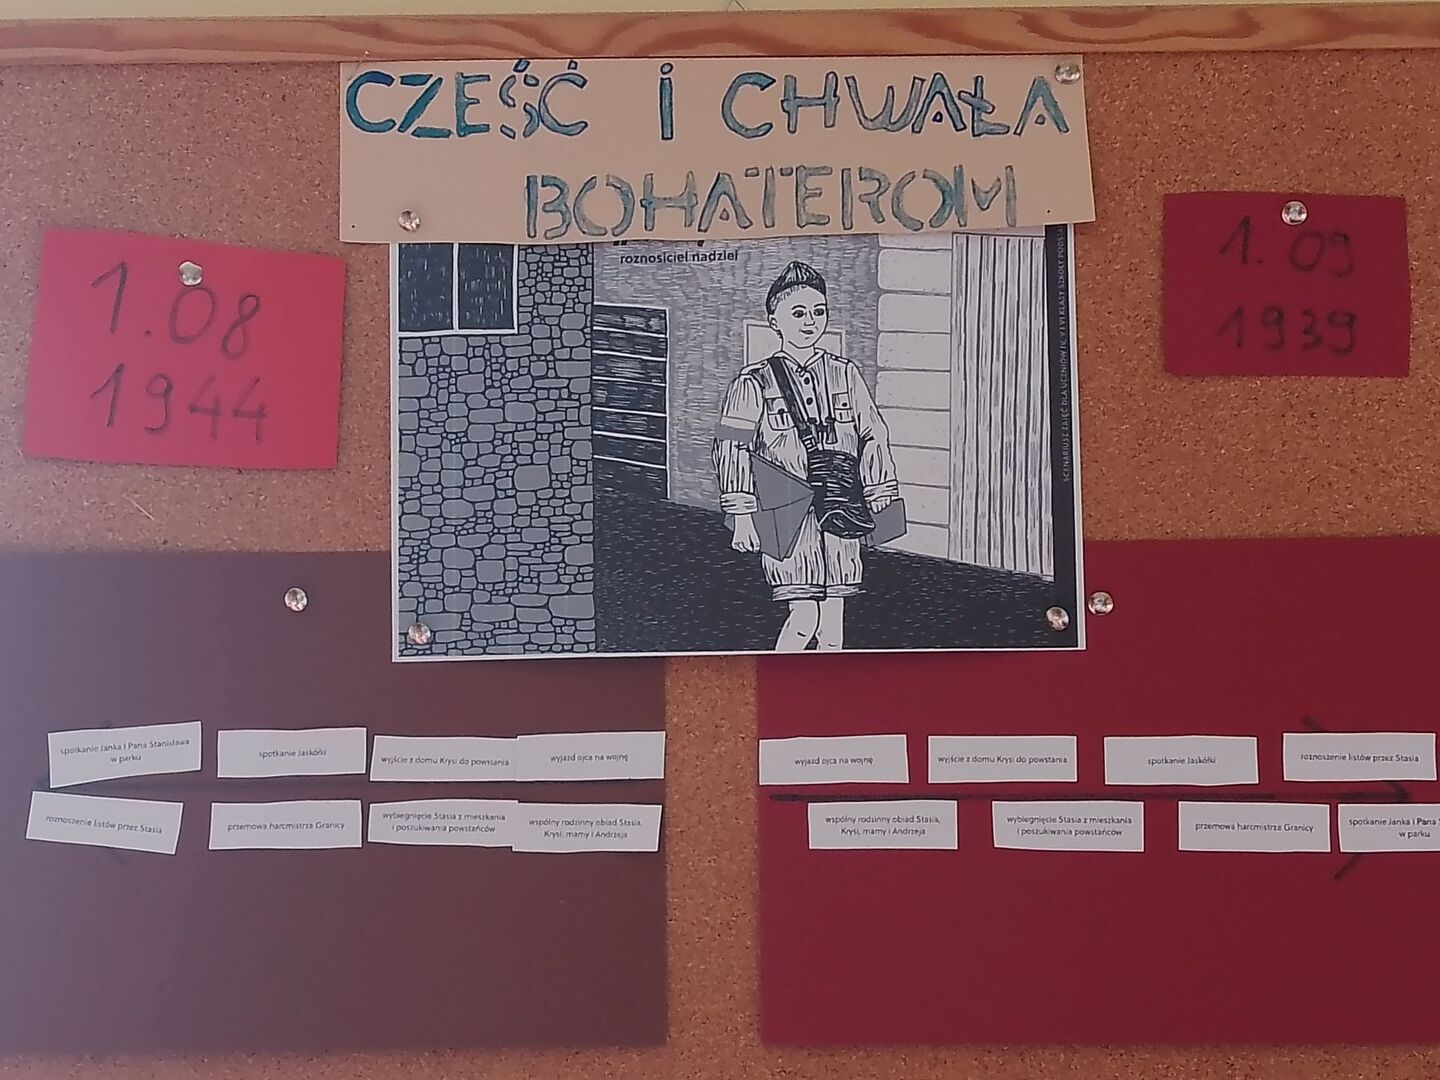 CZEŚĆ I CHWAŁA
BOHATEROM
1.08
1944
1.09
1939
roznosiciel nadziei
SCENARIUSZ ZAJĘĆ DLA UCZNIÓW IV, V I VI KLASY SZKOŁY PODSTA
spotkanie Janka i Pana Stanisława
w parku
spotkanie Jaskółki
wyjście z domu Krysi do powstania
wyjazd ojca na wojnę
roznoszenie listów przez Stasia
przemowa harcmistrza Granicy
wybiegnięcie Stasia z mieszkania
i poszukiwania powstańców
wspólny rodzinny obiad Stasia,
Krysi, mamy i Andrzeja
wyjazd ojca na wojnę
wyjście z domu Krysi do powstania
spotkanie Jaskółki
roznoszenie listów przez Stasia
wspólny rodzinny obiad Stasia,
Krysi, mamy i Andrzeja
wybiegnięcie Stasia z mieszkania
i poszukiwania powstańców
przemowa harcmistrza Granicy
spotkanie Janka i Pana S
w parku